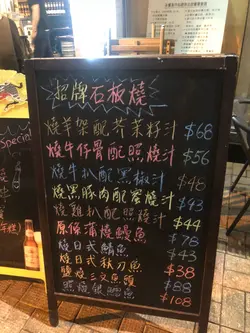 Special
招牌石板燒
燒羊架配芥茉籽汁 $68
燒牛仔骨配照燒汁 $56
燒牛扒配黑椒汁 $48
燒黑豚肉配蜜燒汁 $43
燒雞扒配照燒汁 $44
原條蒲燒鰻魚 $78
燒日式鯖魚 $43
燒日式秋刀魚 $38
鹽燒三文魚頭 $88
照燒銀鱈魚 $108